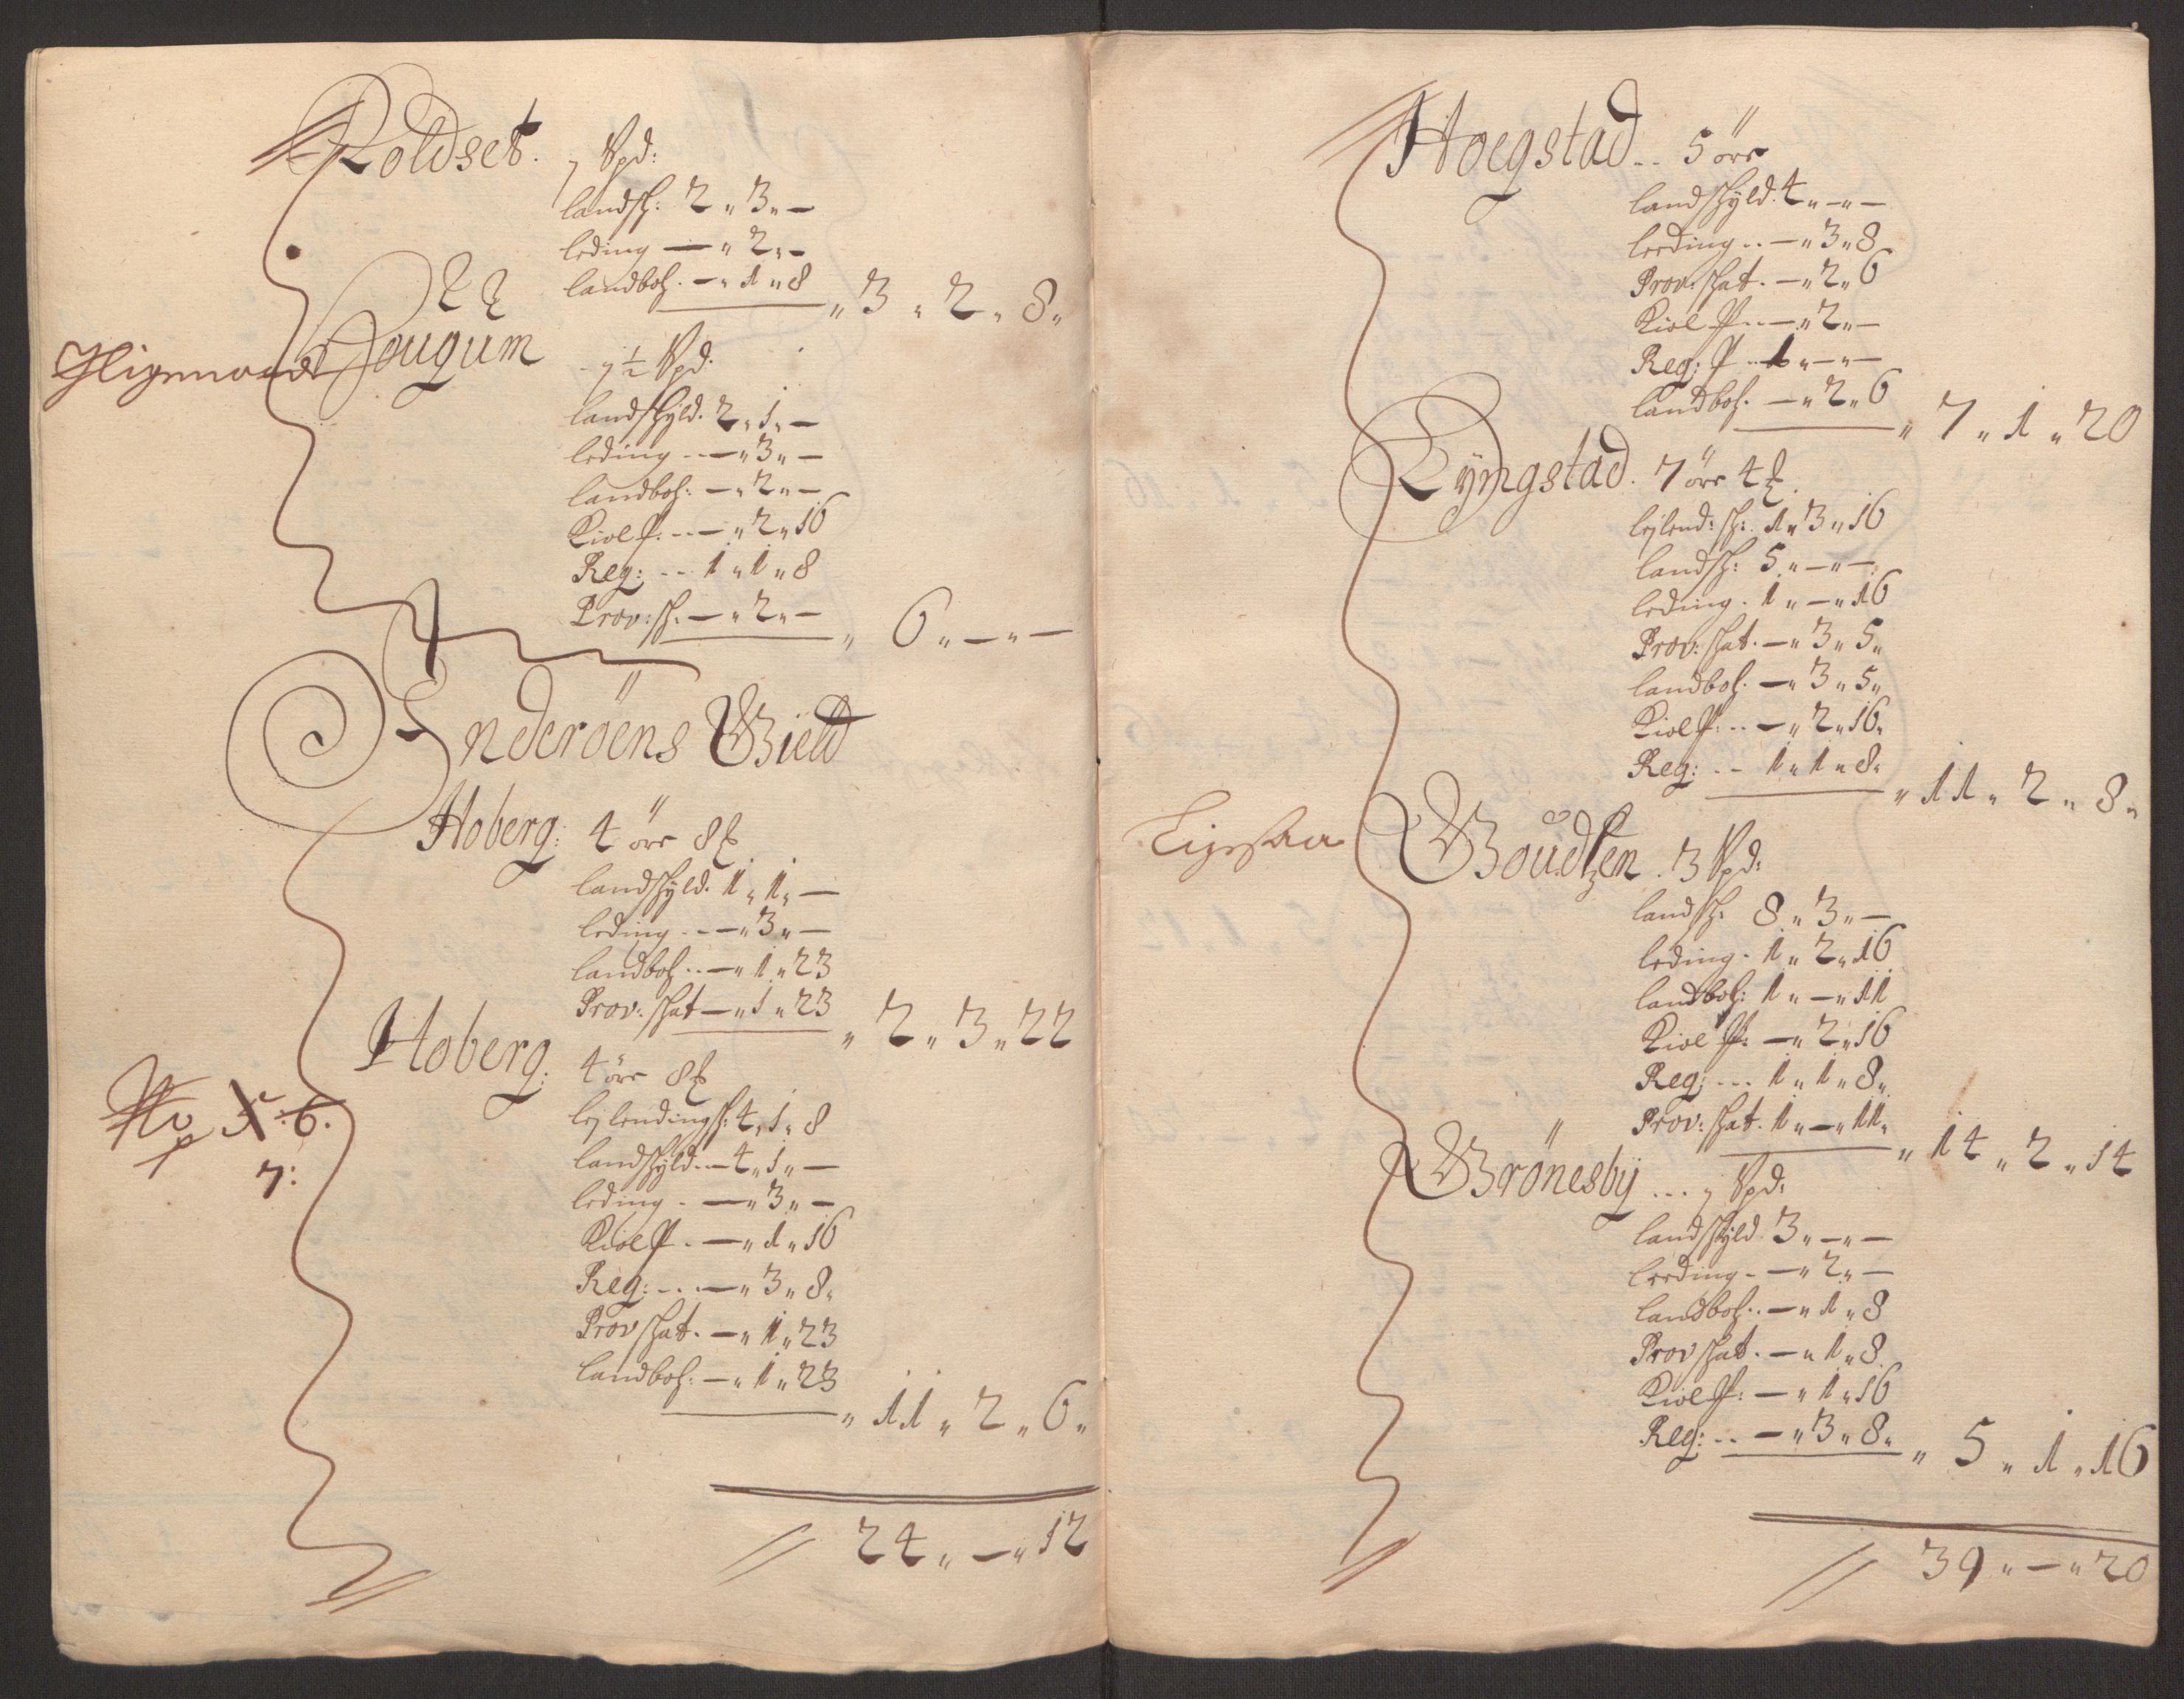 Roldset. 7 Spd:
landsk: 2 „ 3 „ —
leding — „ 2 „ —
landboh. — „ 1 „ 8 „ 3 „ 2 „ 8 „
Hougum 7½ Spd.
landskyld. 2 „ 1 „ —
leding - - — „ 3 „ —
landboh: — „ 2 „ —
Kiol P. - - — „ 2 „ 16
Reg: - - 1 „ 1 „ 8
Prov: sk. — „ 2 „ — „ 6 „ — „ —
Inderöens Gield
Hoberg: 4 öre 8
landskyld. 1 „ 1 „ —
leding - - — „ 3 „ —
landboh. - — „ 1 „ 23
Prov: skat — „ 1 „ 23 „ 2 „ 3 „ 22
Hoberg: 4 öre 8
No 5: 6.
lejlending sk: 4 „ 1 „ 8
7:
landskyld. - 4 „ 1 „ —
leding - — „ 3 „ —
Kiol P. — „ 1 „ 16
Reg: - - — „ 3 „ 8 „
Prov skat. — „ 1 „ 23
landboh: — „ 1 „ 23 „ 11 „ 2 „ 6 „
// 24 „ — „ 12
Hoegstad - - 5 öre
landskyld. 4 „ — „ —
leeding - - — „ 3 „ 8
Prov: skat. — „ 2 „ 6
Kiol P. - — „ 2 „ —
Reg: P - 1 „ — „ —
landboh. — „ 2 „ 6 „ 7 „ 1 „ 20
Lyngstad. 7 öre 4
lejlend: sk: 1 „ 3 „ 16
landsk: 5 „ — „ —
leding. 1 „ — „ 16
Prov: skat. — „ 3 „ 5 „
landboh. — „ 3 „ 5 „
Kiol P. - - — „ 2 „ 16 „
Reg: - - 1 „ 1 „ 8 „ „ 11 „ 2 „ 8 „
Goudtzen. 3 Spd:
landsk: 8 „ 3 „ —
leding. 1 „ 2 „ 16
landboh: 1 „ — „ 11
Kiol P: — „ 2 „ 16
Reg: - - - 1 „ 1 „ 8 „
Prov: skat. 1 „ — „ 11 „ „ 14 „ 2 „ 14
Grönesby - - - 7 Spd:
landskyld. 3 „ — „ —
leeding - — „ 2 „ —
landboh. - — „ 1 „ 8
Prov skat. — „ 1 „ 8
Kiol P: — „ 1 „ 16
Reg: - - — „ 3 „ 8 „ „ 5 „ 1 „ 16
// 39 „ — „ 20